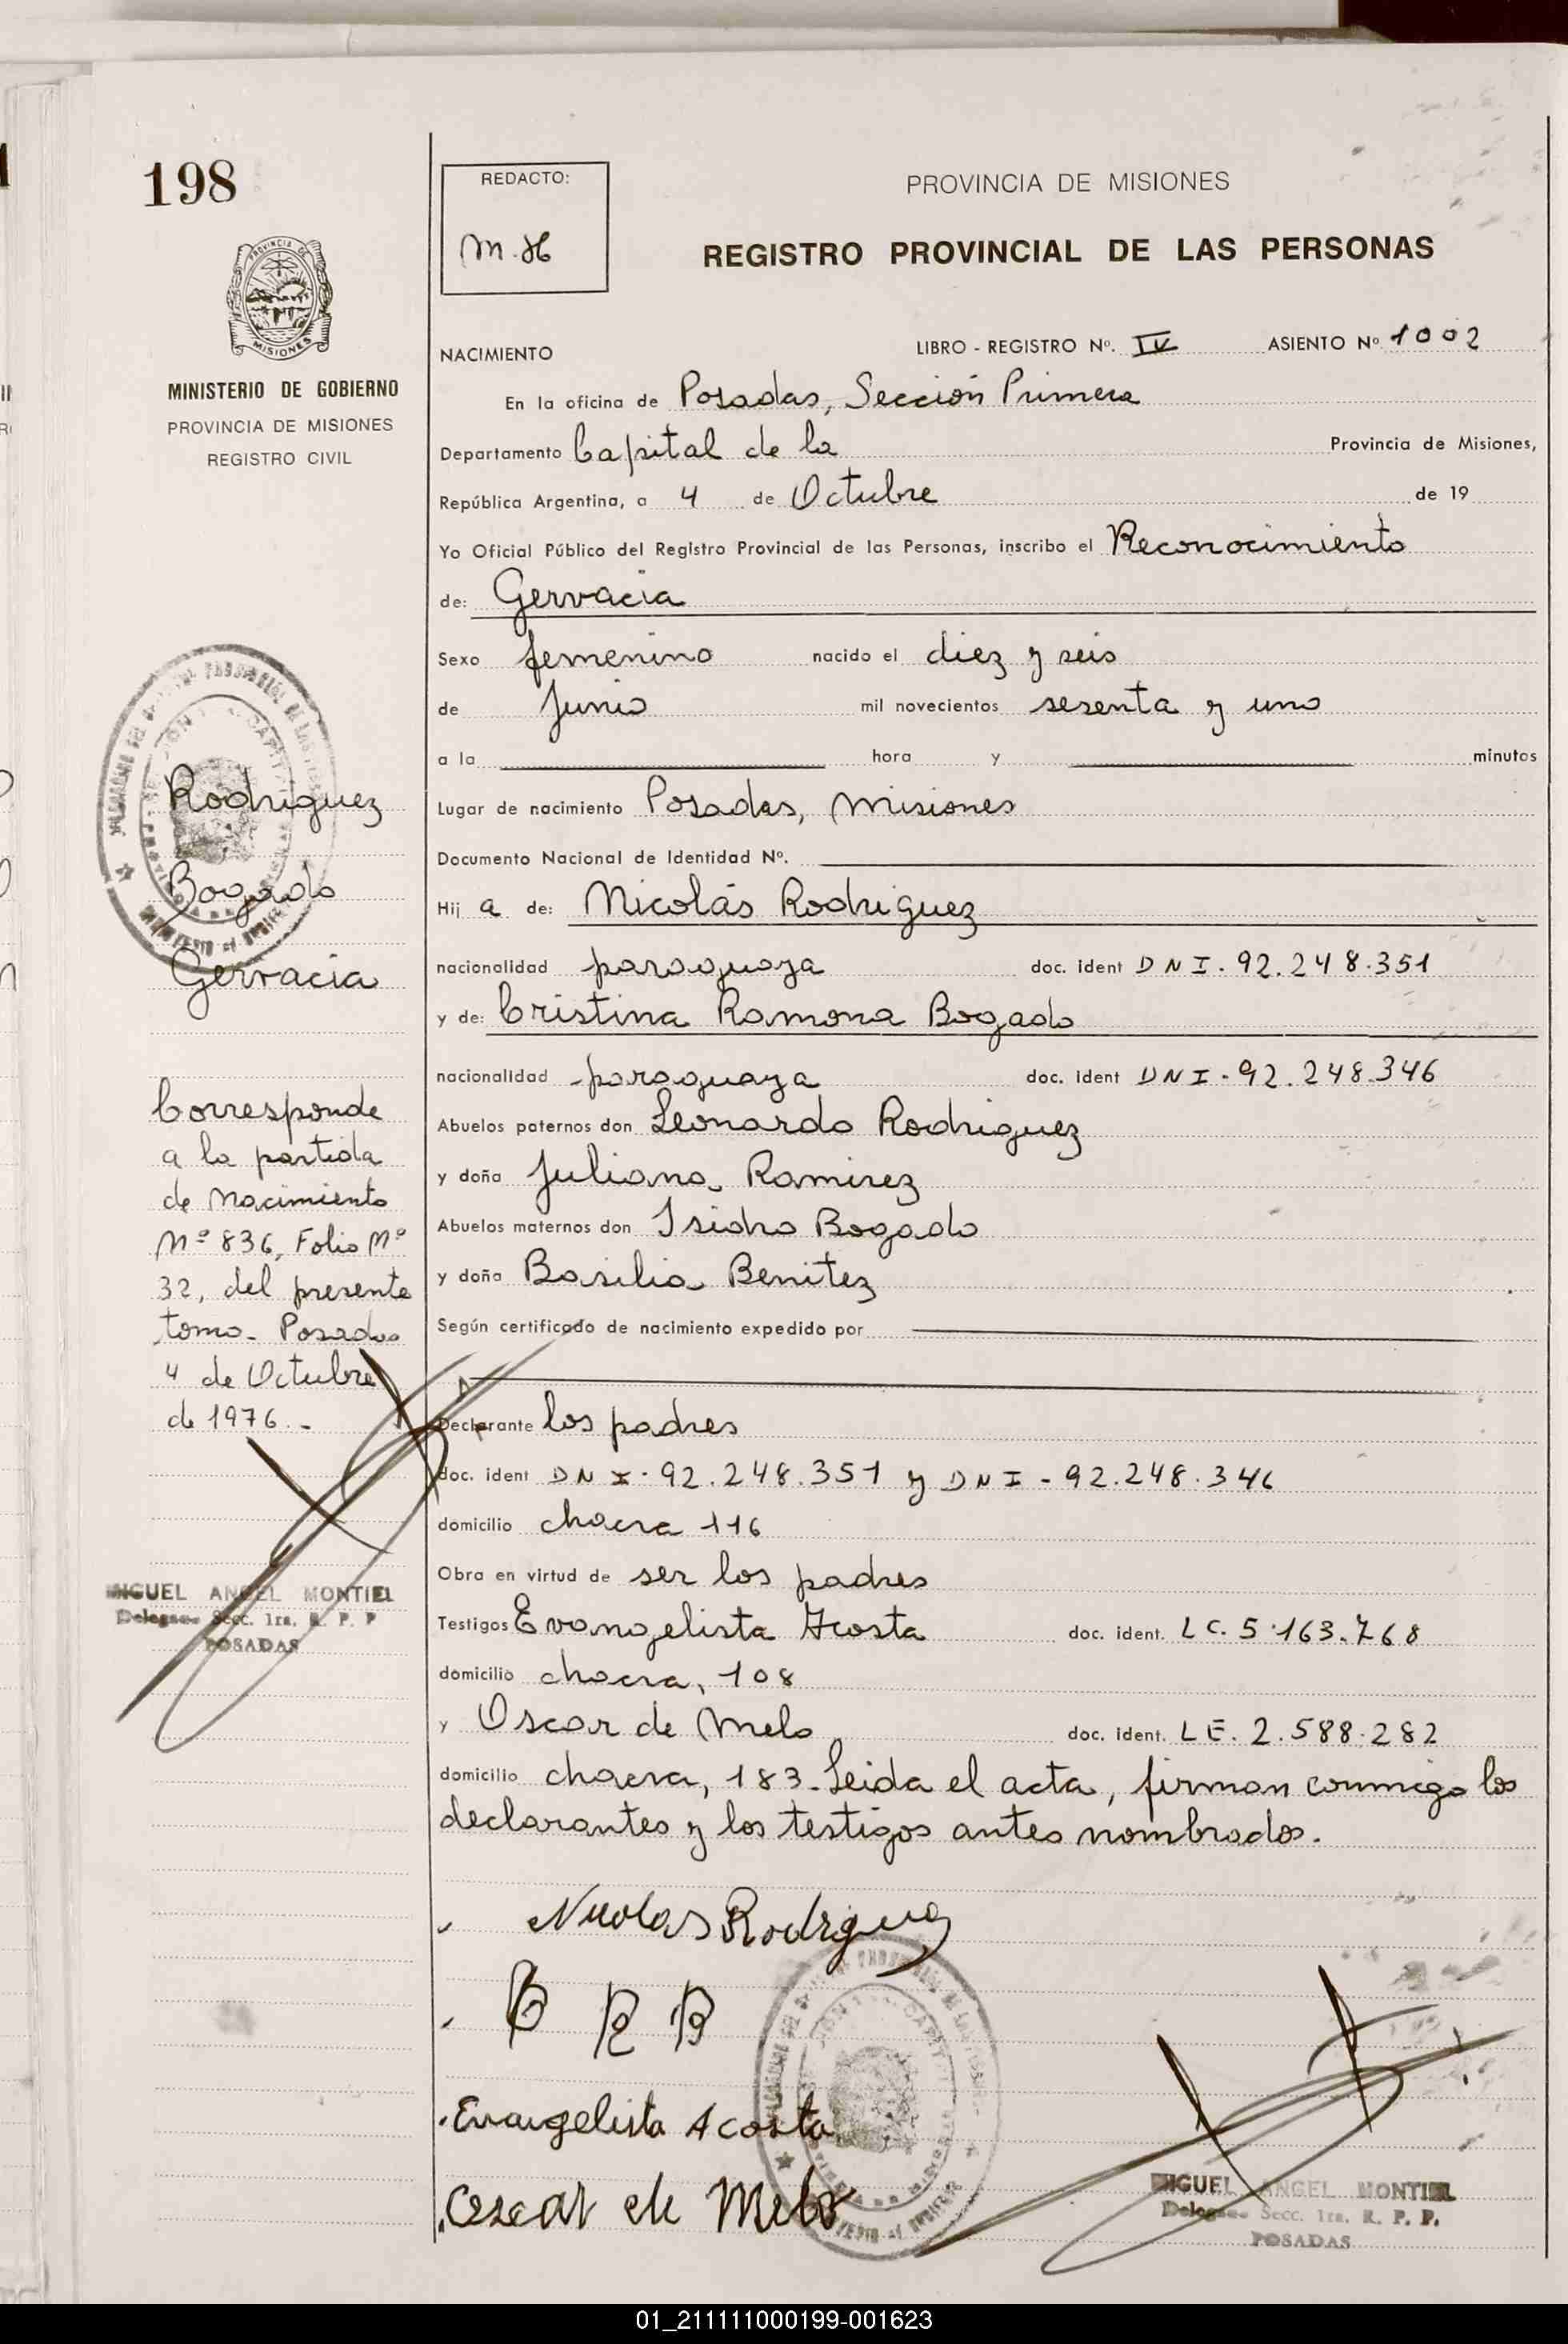 198
REDACTO:
M. H
PROVINCIA DE MISIONES
REGISTRO PROVINCIAL DE LAS PERSONAS
MISIONES
MINISTERIO DE GOBIERNO
PROVINCIA DE MISIONES
REGISTRO CIVIL
NACIMIENTO LIBRO - REGISTRO Nº. IV ASIENTO Nº 1002
En la oficina de Posadas, Sección Primera
Departamento Capital de la Provincia de Misiones,
República Argentina, a 4 de Octubre de 19
Yo Oficial Público del Registro Provincial de las Personas, inscribo el Reconocimiento
de: Gervacia
Sexo femenino nacido el diez y seis
de Junio mil novecientos sesenta y uno
a la hora y minutos
Lugar de nacimiento Posadas, Misiones
Documento Nacional de Identidad Nº.
Hij a de: Nicolás Rodriguez
nacionalidad paraguaya doc. ident DNI. 92.248.351
y de: Cristina Ramona Bogado
nacionalidad paraguaya doc. ident DNI - 92.248.346
Abuelos paternos don Leonardo Rodriguez
y doña Juliana Ramirez
Abuelos maternos don Isidro Bogado
y doña Basilia Benitez
Según certificado de nacimiento expedido por
Declarante los padres
doc. ident DNI. 92.248.351 y DNI - 92.248.346
domicilio chacra 116
Obra en virtud de ser los padres
Testigos Evangelista Acosta doc. ident. LC. 5.163.768
domicilio chacra, 108
y Oscar de Melo doc. ident. LE. 2.588.282
domicilio chacra, 183. Leida el acta, firman conmigo los
declarantes y los testigos antes nombrados.
Nicolas Rodriguez
C R B
Evangelista Acosta
Oscar de Melo
MIGUEL ANGEL MONTIEL
Delegado Secc. 1ra. R. P. P.
POSADAS
Rodriguez
Bogado
Gervacia
Corresponde
a la partida
de Nacimiento
Nº 836, Folio Nº
32, del presente
tomo - Posadas
4 de Octubre
de 1976.-
MIGUEL ANGEL MONTIEL
Delegado Secc. 1ra. R. P. P
POSADAS
01_211111000199-001623